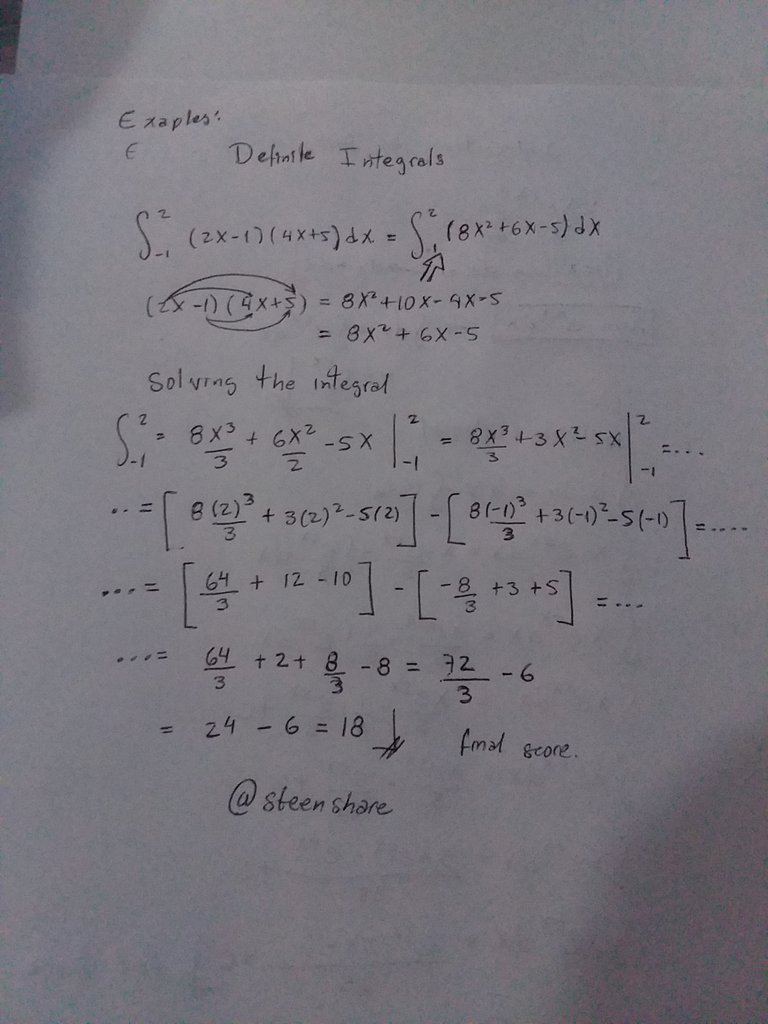 Exaples:
E Definite Integrals
∫₋₁² (2x-1)(4x+5)dx = ∫₋₁² (8x²+6x-5)dx
(2x-1)(4x+5) = 8x²+10x-4x-5
= 8x²+6x-5
Solving the integral
∫₋₁² = 8x³/3 + 6x²/2 -5x |₋₁² = 8x³/3 +3x²-5x |₋₁² =...
..=[8(2)³/3 + 3(2)²-5(2)] - [8(-1)³/3 +3(-1)²-5(-1)] =.....
...= [64/3 + 12 -10] - [-8/3 +3 +5] =...
...= 64/3 +2+ 8/3 -8 = 72/3 -6
= 24 - 6 = 18 final score.
@steenshare